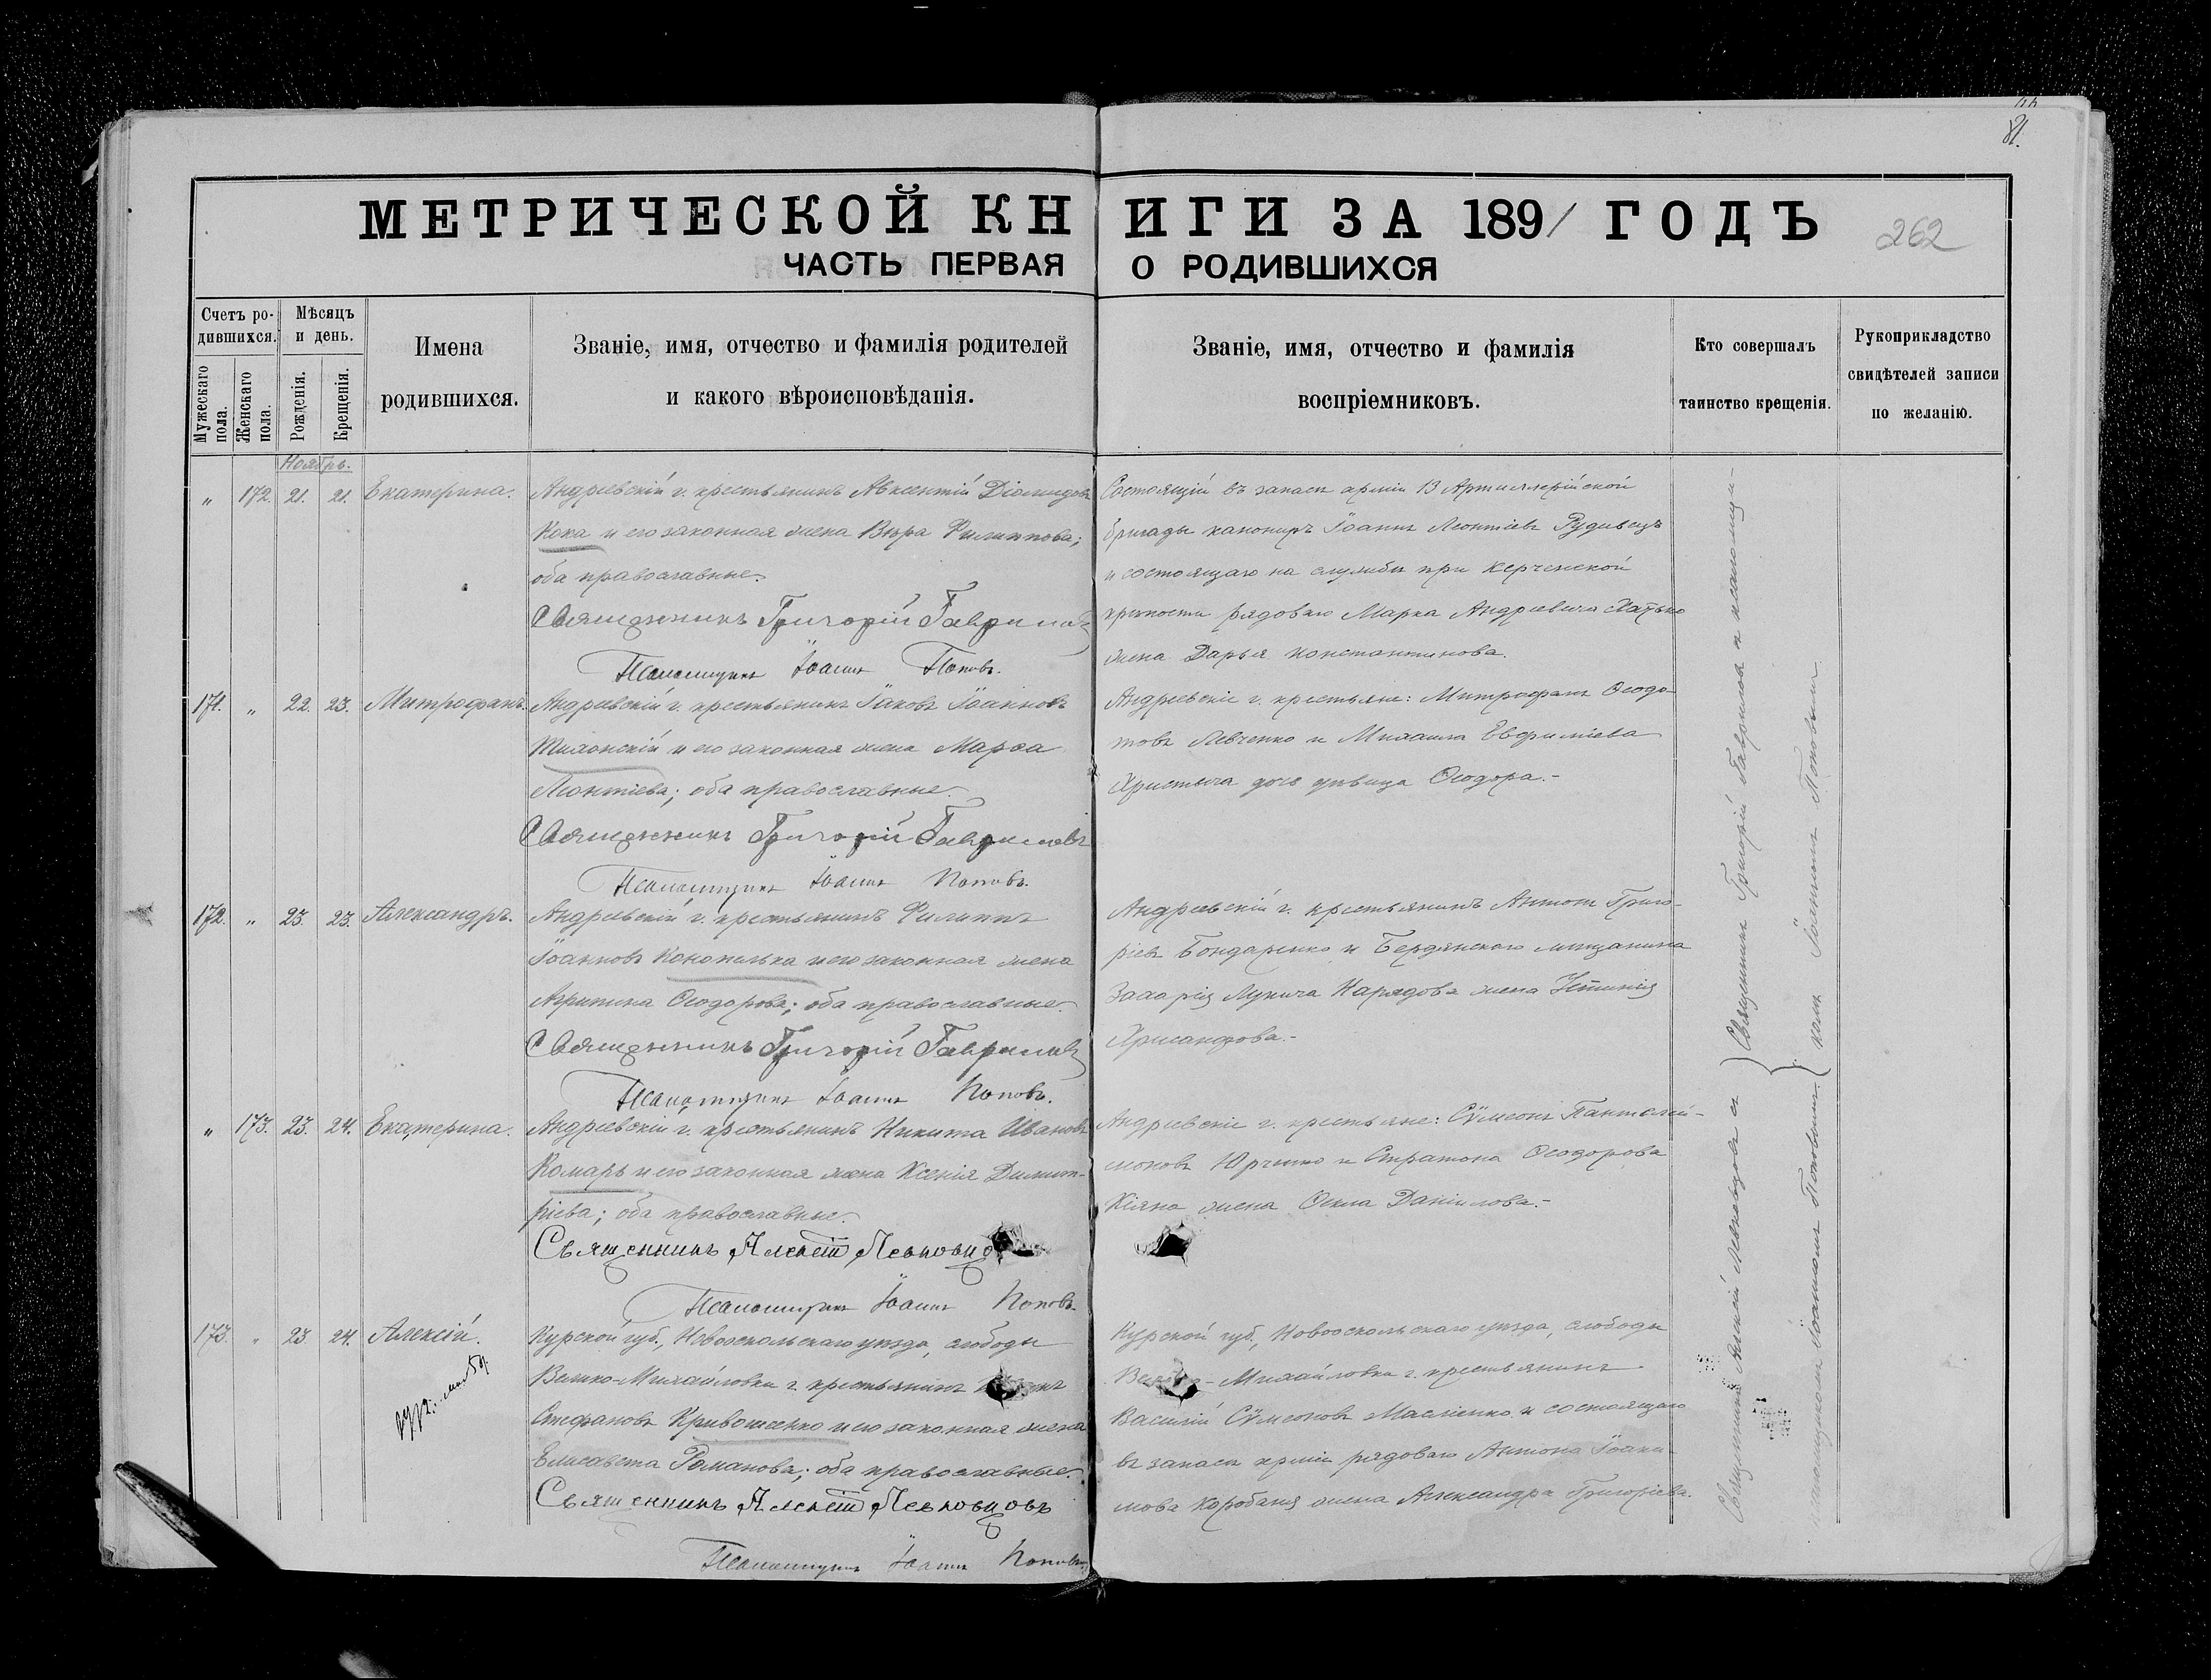 81.
МЕТРИЧЕСКОЙ КНИГИ ЗА 1891 ГОДЪ
262
ЧАСТЬ ПЕРВАЯ О РОДИВШИХСЯ
Счетъ родившихся.
Мужескаго пола.
Женскаго пола.
Мѣсяцъ и день.
Рожденія.
Крещенія.
Имена родившихся.
Званіе, имя, отчество и фамилія родителей
и какого вѣроисповѣданія.
Званіе, имя, отчество и фамилія
воспріемниковъ.
Кто совершалъ
таинство крещенія.
Рукоприкладство
свидѣтелей записи
по желанію.
Ноябрь.
" 172. 21. 21. Екатерина.
Андреевскій г. крестьянинъ Авксентій Діомидовъ
Кока и его законная жена Вѣра Филиппова;
оба православные.
Священникъ Григорій Гавриловъ
Псаломщикъ Іоаннъ Поповъ.
Состоящій въ запасѣ арміи 13 Артиллерійской
бригады канониръ Іоаннъ Леонтіевъ Рудивецъ
и состоящаго на службѣ при Керченской
крѣпости рядоваго Марка Андреевича Хатько
жена Дарья Константинова.
171. " 22. 23. Митрофанъ.
Андреевскій г. крестьянинъ Іаковъ Іоанновъ
и его законная жена Марѳа
Леонтіева; оба православные.
Священникъ Григорій Гавриловъ
Псаломщикъ Іоаннъ Поповъ.
Андреевскіе г. крестьяне: Митрофанъ Ѳеодотовъ Левченко и Михаила Евфиміева
дочь дѣвица Ѳеодора.-
172. " 23. 23. Александръ.
Андреевскій г. крестьянинъ Филиппъ
Іоанновъ Конопелька и его законная жена
Агрипина Ѳеодорова; оба православные.
Священникъ Григорій Гавриловъ
Псаломщикъ Іоаннъ Поповъ.
Андреевскій г. крестьянинъ Антонъ Григо-
ріевъ Бондаренко и Бердянскаго мѣщанина
Захарія Лукича Нарядова жена Устинія
Хрисанфова.-
" 173. 23. 24. Екатерина.
Андреевскій г. крестьянинъ Никита Ивановъ
Комаръ и его законная жена Ксенія Димит-
ріева; оба православные.
Священникъ Алексій
Псаломщикъ Іоаннъ Поповъ.
Андреевскіе г. крестьяне: Сѵмеонъ Пантелей-
моновъ Юрченко и Стратона Ѳеодорова
Кіяна жена Ѳекла Даніилова.-
173. " 23. 24. Алексій.
Курской губ., Новооскольскаго уѣзда, слободы
Велико-Михайловки г. крестьянинъ
Стефановъ Кривошенко и его законная жена
Елисавета Романова; оба православные.
Священникъ Алексій Левковцовъ
Псаломщикъ Іоаннъ Поповъ
Курской губ., Новооскольскаго уѣзда, слободы
Велико-Михайловки г. крестьянинъ
Василій Сѵмеоновъ Масленко и состоящаго
въ запасѣ арміи рядоваго Антона Іоаки-
мова Коробаня жена Александра Григоріева.
Священникъ Григорій Гавриловъ и псаломщи-
комъ Іоанномъ Поповымъ
Священникъ Алексій Левковцовъ съ
псаломщикомъ Іоанномъ Поповымъ